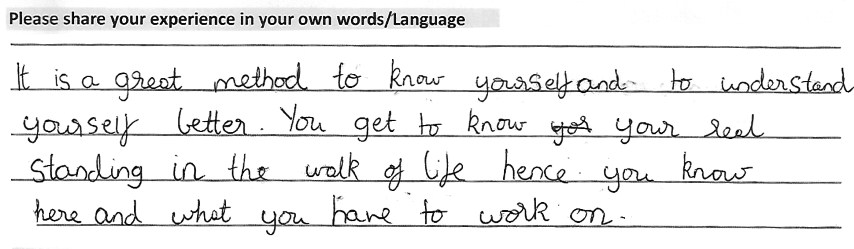 Please share your experience in your own words/Language
It is a great method to know yourself and to understand
yourself better. You get to know your real
standing in the walk of life hence you know
here and what you have to work on.